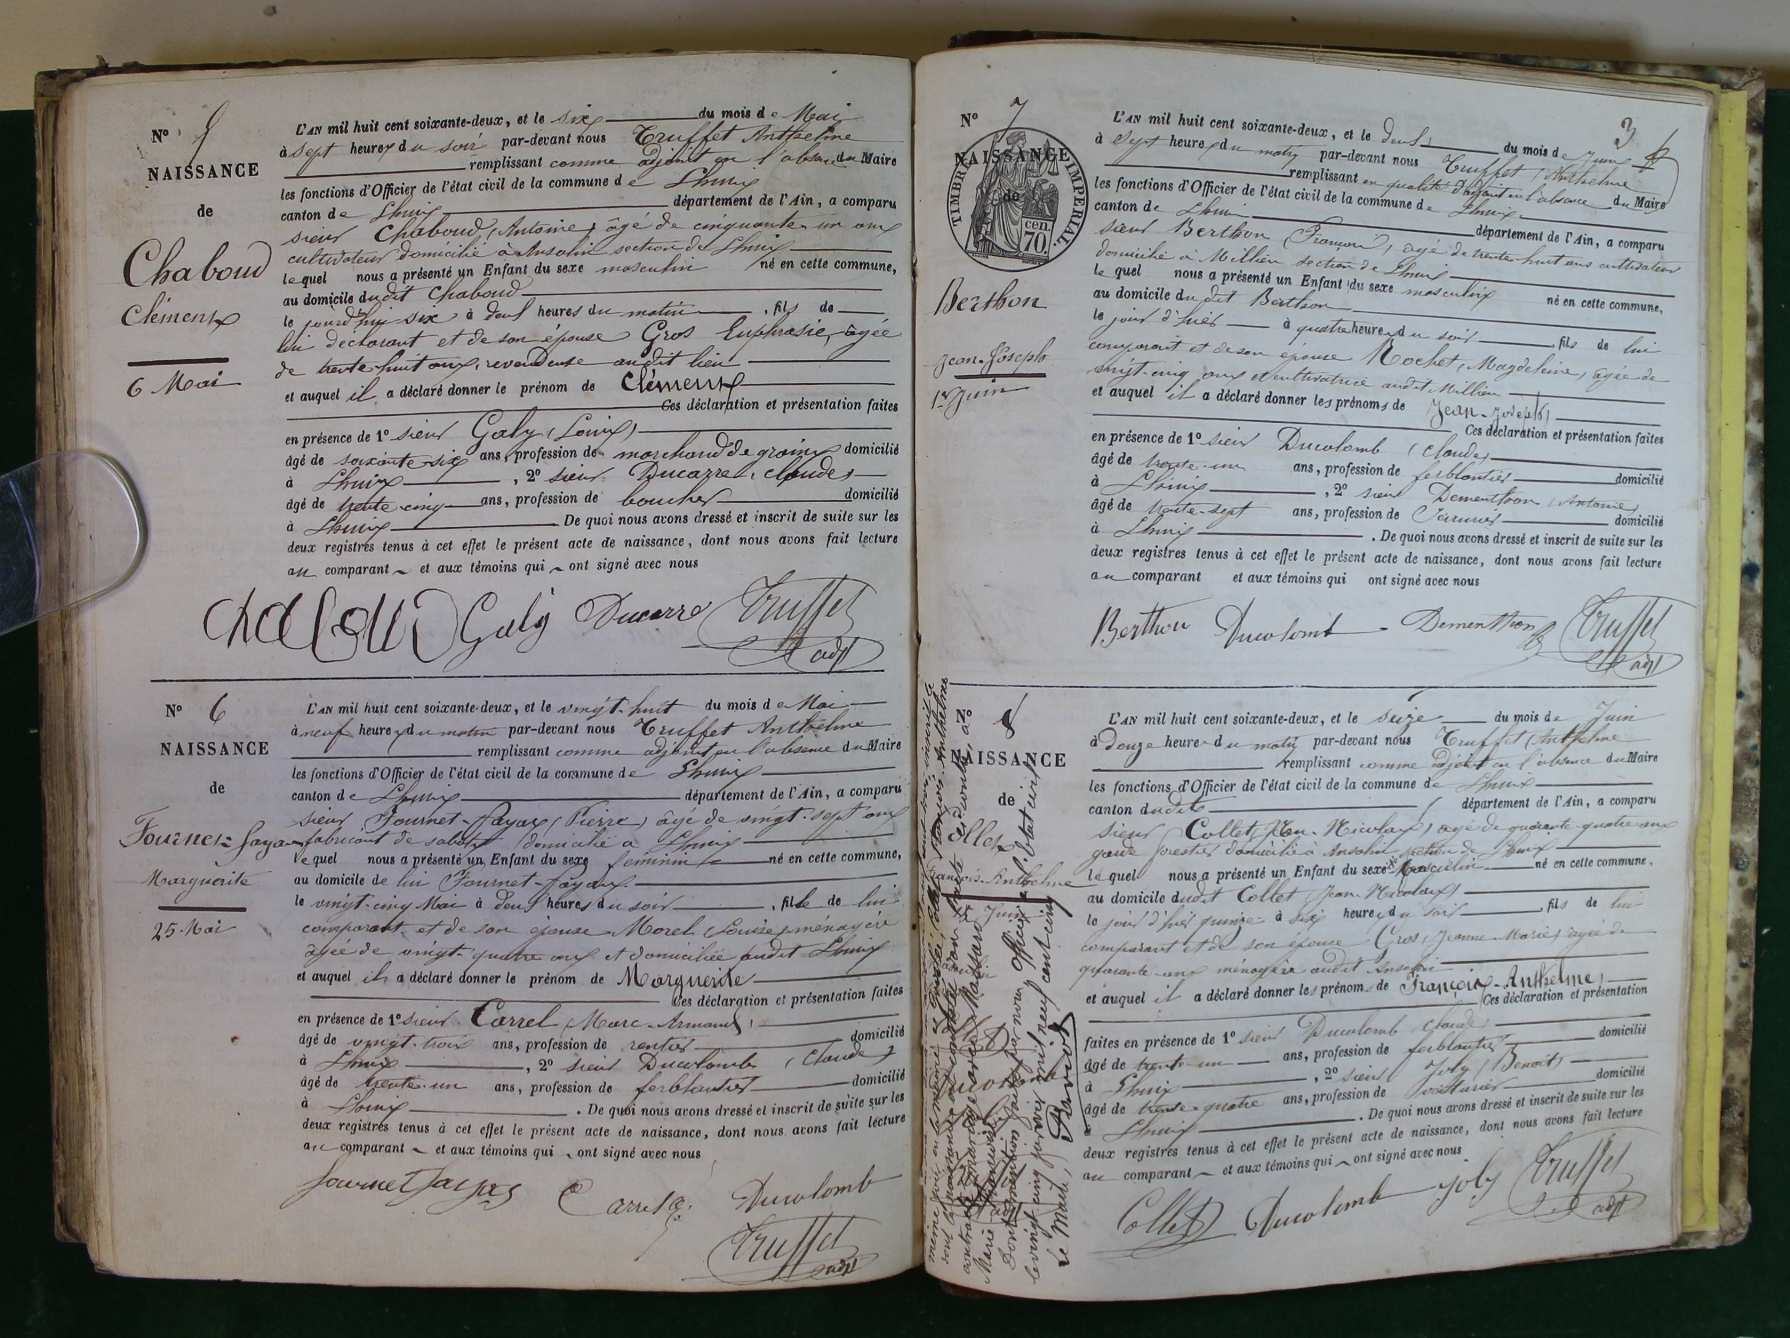 N° 5
NAISSANCE
de
Chaboud
Clément
6 Mai
L'AN mil huit cent soixante-deux, et le six du mois de Mai
à sept heures du soir par-devant nous Truffet Anthelme
remplissant comme adjoint en l'absence du Maire
les fonctions d'Officier de l'état civil de la commune de Lhuis
canton de Lhuis département de l'Ain, a comparu
sieur Chaboud (Antoine) âgé de cinquante-un ans
cultivateur domicilié à Ansolin section de Lhuis
lequel nous a présenté un Enfant du sexe masculin né en cette commune,
au domicile dudit Chaboud
le jourd'hui six à deux heures du matin, fils de
lui déclarant et de son épouse Gros Euphrasie, âgée
de trente-huit ans, revendeuse audit lieu
et auquel il a déclaré donner le prénom de Clément
Ces déclaration et présentation faites
en présence de 1° sieur Galy (Louis)
âgé de soixante-six ans, profession de marchand de grains domicilié
à Lhuis, 2° sieur Ducarre, Claude
âgé de trente-cinq ans, profession de boucher domicilié
à Lhuis. De quoi nous avons dressé et inscrit de suite sur les
deux registres tenus à cet effet le présent acte de naissance, dont nous avons fait lecture
au comparant et aux témoins qui ont signé avec nous
Chaboud Galy Ducarre Truffet
adjt
N° 6
NAISSANCE
de
Fournet-Fayax
Marguerite
25 Mai
L'AN mil huit cent soixante-deux, et le vingt-huit du mois de Mai
à neuf heures du matin par-devant nous Truffet Anthelme
remplissant comme adjoint en l'absence du Maire
les fonctions d'Officier de l'état civil de la commune de Lhuis
canton de Lhuis département de l'Ain, a comparu
sieur Fournet-Fayax (Pierre) âgé de vingt-sept ans
fabricant de sabots domicilié à Lhuis
lequel nous a présenté un Enfant du sexe féminin né en cette commune,
au domicile de lui Fournet-Fayax
le vingt-cinq Mai à deux heures du soir, fille de lui
comparant et de son épouse Morel (Louise) ménagère
âgée de vingt-quatre ans et domiciliée audit Lhuis
et auquel il a déclaré donner le prénom de Marguerite
Ces déclaration et présentation faites
en présence de 1° sieur Carrel (Marc-Armand)
âgé de vingt-trois ans, profession de rentier domicilié
à Lhuis, 2° sieur Ducolomb (Claude)
âgé de trente-un ans, profession de ferblantier domicilié
à Lhuis. De quoi nous avons dressé et inscrit de suite sur les
deux registres tenus à cet effet le présent acte de naissance, dont nous avons fait lecture
au comparant et aux témoins qui ont signé avec nous
Fournet Fayax Carrel Ducolomb
Truffet
adjt
3
N° 7
NAISSANCE
de
TIMBRE IMPERIAL
70 cen.
Berthon
Jean-Joseph
1er Juin
L'AN mil huit cent soixante-deux, et le deux du mois de Juin
à sept heures du matin par-devant nous Truffet (Anthelme
remplissant en qualité d'adjoint en l'absence du Maire
les fonctions d'Officier de l'état civil de la commune de Lhuis
canton de Lhuis département de l'Ain, a comparu
sieur Berthon (François) âgé de trente-huit ans cultivateur
domicilié à Millieu section de Lhuis
lequel nous a présenté un Enfant du sexe masculin né en cette commune,
au domicile dudit Berthon
le jour d'hier à quatre heures du soir fils de lui
comparant et de son épouse Mochet (Magdeleine) âgée de
vingt-cinq ans et cultivatrice audit Millieu
et auquel il a déclaré donner les prénoms de Jean-Joseph
Ces déclaration et présentation faites
en présence de 1° sieur Ducolomb (Claude)
âgé de trente-un ans, profession de ferblantier domicilié
à Lhuis, 2° sieur Dementhon (Antoine)
âgé de trente-sept ans, profession de domicilié
à Lhuis. De quoi nous avons dressé et inscrit de suite sur les
deux registres tenus à cet effet le présent acte de naissance, dont nous avons fait lecture
au comparant et aux témoins qui ont signé avec nous
Berthon Ducolomb Dementhon Truffet
adjt
N° 8
NAISSANCE
de
Collet
François-Anthelme
15 Juin
L'AN mil huit cent soixante-deux, et le seize du mois de Juin
à douze heures du matin par-devant nous Truffet (Anthelme
remplissant comme adjoint en l'absence du Maire
les fonctions d'Officier de l'état civil de la commune de Lhuis
canton dudit département de l'Ain, a comparu
sieur Collet (Jean-Nicolas) âgé de quarante-quatre ans
garde forestier domicilié à Ansolin section de Lhuis
lequel nous a présenté un Enfant du sexe Masculin né en cette commune,
au domicile dudit Collet (Jean-Nicolas)
le jour d'hier quinze à six heures du soir fils de lui
comparant et de son épouse Gros (Jeanne-Marie) âgée de
quarante ans ménagère audit Ansolin
et auquel il a déclaré donner les prénoms de François-Anthelme
Ces déclaration et présentation
faites en présence de 1° sieur Ducolomb Claude
âgé de trente-un ans, profession de ferblantier domicilié
à Lhuis, 2° sieur Joly (Benoit)
âgé de trente-quatre ans, profession de voiturier domicilié
à Lhuis. De quoi nous avons dressé et inscrit de suite sur les
deux registres tenus à cet effet le présent acte de naissance, dont nous avons fait lecture
au comparant et aux témoins qui ont signé avec nous
Collet Ducolomb Joly Truffet
adjt
Dont mention faite par nous Officier de l'état civil
le vingt cinq janvier mil neuf cent
Le Maire,